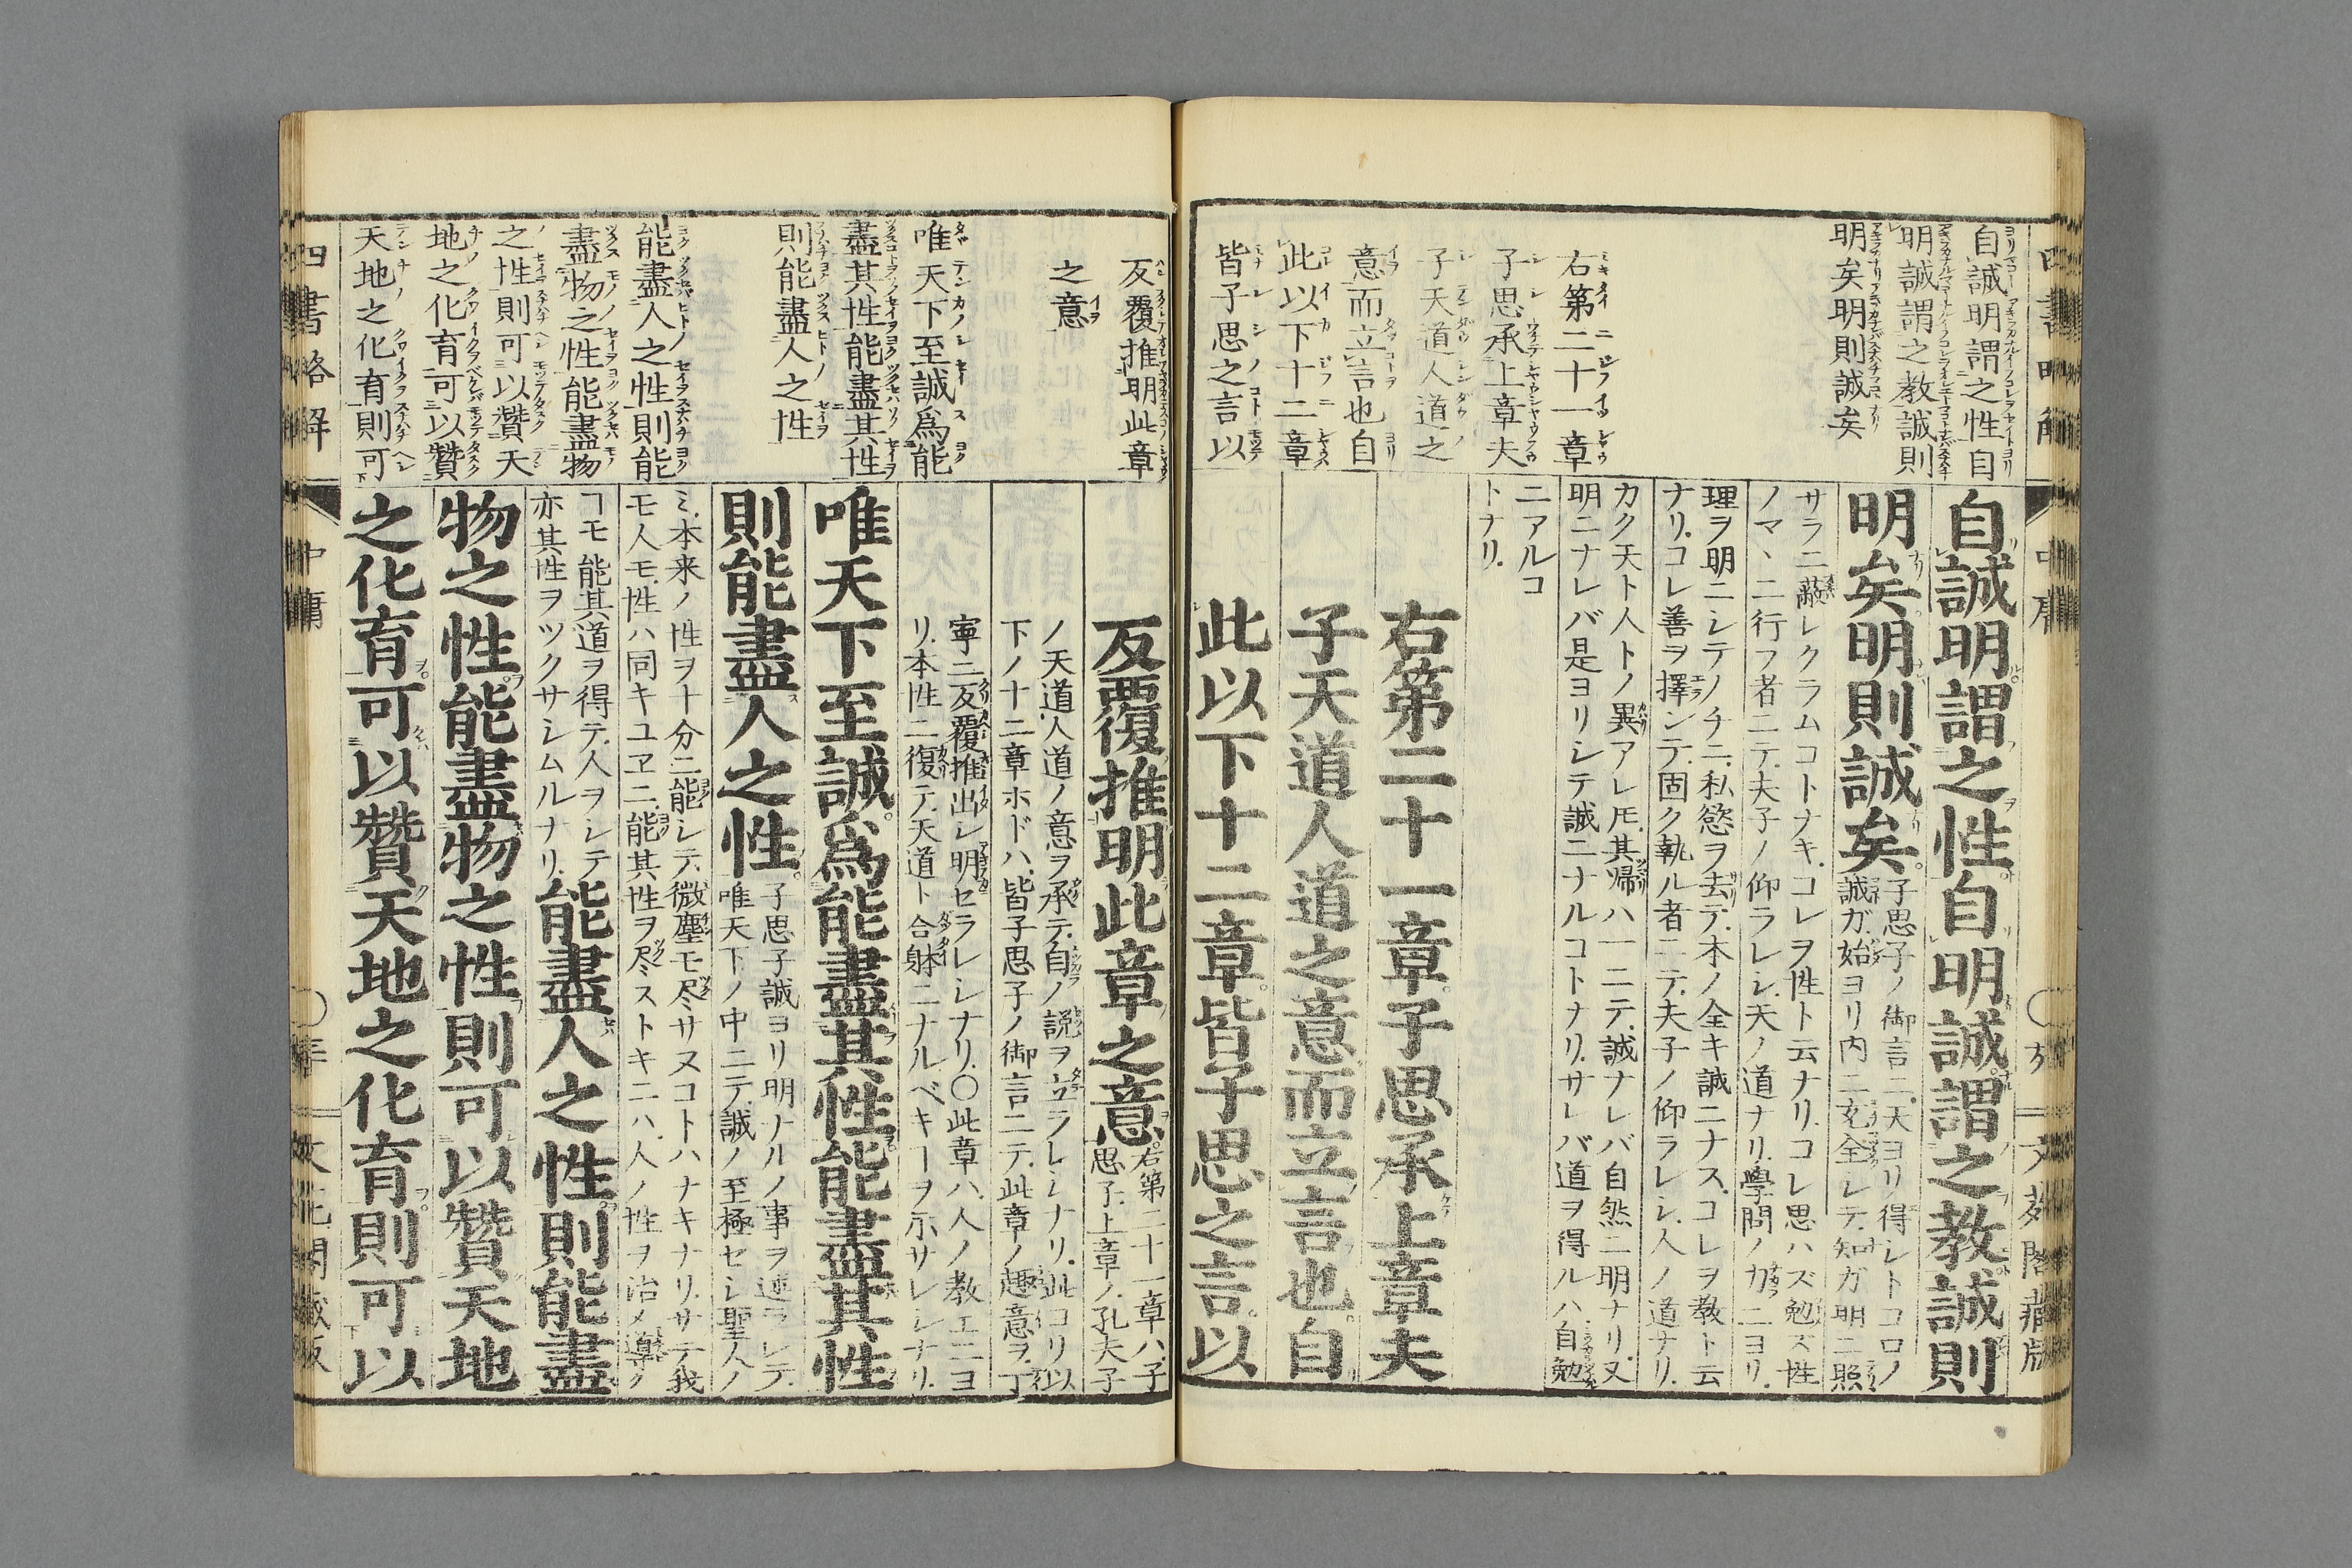 自誠明謂之性自
明誠謂之教誠則
明矣明則誠矣
右第二十一章
子思承上章夫
子天道人道之
意而立言也自
此以下十二章
皆子思之言以
自誠明謂之性自明誠謂之教誠則
明矣明則誠矣
子思子ノ御言ニ天ヨリ得シトコロノ
誠ガ始ヨリ内ニ充全シテ知ガ明ニ照
サラニ蔽レクラムコトナキコレヲ性ト云ナリコレ思ハズ勉ズ性
ノマヽニ行フ者ニテ夫子ノ仰ラレシ天ノ道ナリ學問ノ力ニヨリ
理ヲ明ニシテノチニ私慾ヲ去テ本ノ全キ誠ニナスコレヲ教ト云
ナリコレ善ヲ擇ンデ固ク執ル者ニテ夫子ノ仰ラレシ人ノ道ナリ
カク天ト人トノ異アレ𪜈其帰ハ一ニテ誠ナレバ自然ニ明ナリ又
明ニナレバ是ヨリシテ誠ニナルコトナリサレバ道ヲ得ルハ自勉
ニアルコ
トナリ
右第二十一章子思承上章夫
子天道人道之意而立言也自
此以下十二章皆子思之言以
反覆推明此章
之意
唯天下至誠爲能
盡其性能盡其性
則能盡人之性
能盡人之性則能
盡物之性能盡物
之性則可以贊天
地之化育可以贊
天地之化育則可
反覆推明此章之意
右第二十一章ハ子
思子上章ノ孔夫子
ノ天道人道ノ意ヲ承テ自ノ説ヲ立ラレシナリ此コリ以
下ノ十二章ホドハ皆子思子ノ御言ニテ此章ノ趣意ヲ丁
寧ニ反覆推出シ明セラレシナリ〇此章ハ人ノ教エニヨ
リ本性ニ復テ天道ト合躰ニナルベキヿヲ示サレシナリ
唯天下至誠爲能盡其性能盡其性
則能盡人之性
子思子誠ヨリ明ナルノ事ヲ述ラレテ
唯天下ノ中ニテ誠ノ至極セシ聖人ノ
ミ本来ノ性ヲ十分ニ能シテ微塵モ尽サヌコトハナキナリサテ我
モ人モ性ハ同キユヱニ能其性ヲ尽ストキニハ人ノ性ヲ治メ導ク
ヿモ能其道ヲ得テ人ヲシテ
亦其性ヲツクサシムルナリ
能盡人之性則能盡
物之性能盡物之性則可以贊天地
之化育可以贊天地之化育則可以
四書略解
中庸